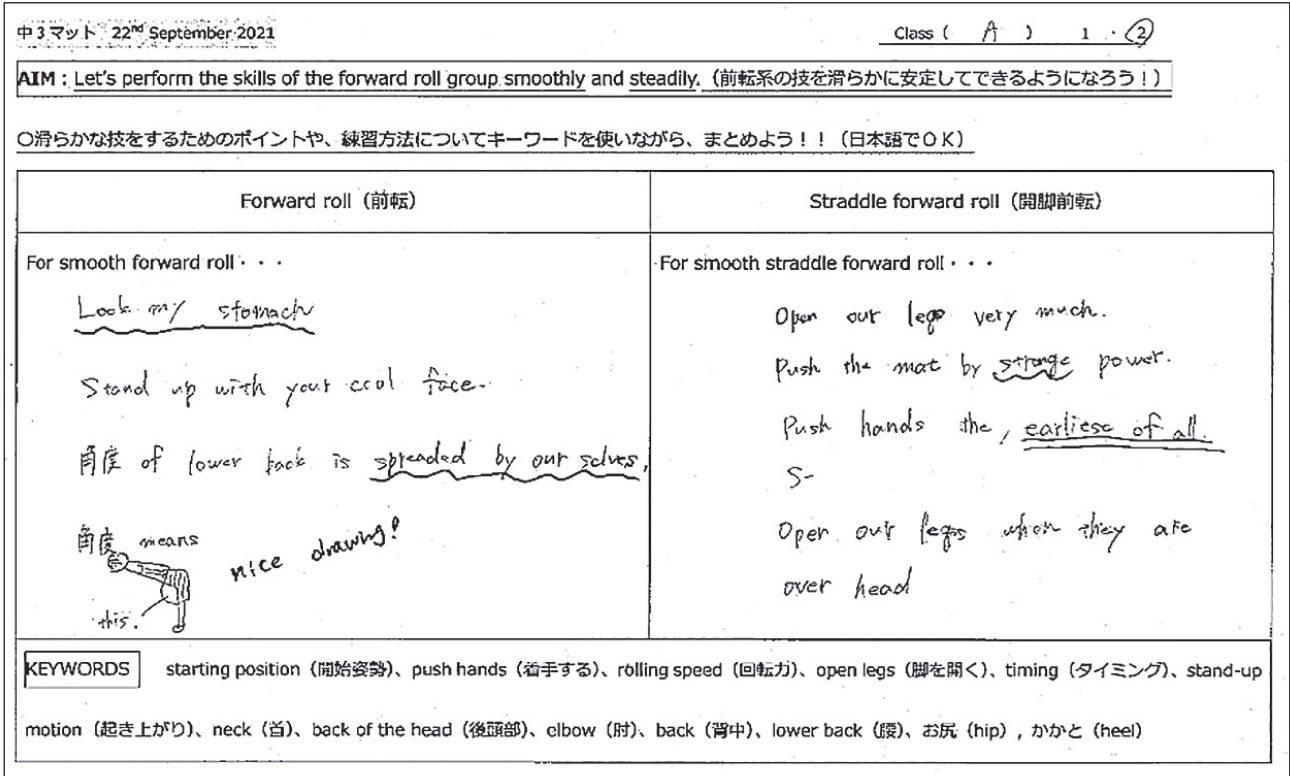 中3マット 22nd September 2021
Class ( A ) 1 ・ 2
AIM : Let's perform the skills of the forward roll group smoothly and steadily. (前転系の技を滑らかに安定してできるようになろう！)
〇滑らかな技をするためのポイントや、練習方法についてキーワードを使いながら、まとめよう！！（日本語でOK）
Forward roll（前転）
For smooth forward roll・・・
Look my stomach
Stand up with your cool face.
角度 of lower back is spreaded by our selves.
角度 means
this.
nice drawing!
Straddle forward roll（開脚前転）
For smooth straddle forward roll・・・
Open our legs very much.
Push the mat by strange power.
Push hands the, earliese of all.
S-
Open our legs when they are
over head
KEYWORDS starting position（開始姿勢）、push hands（着手する）、rolling speed（回転力）、open legs（脚を開く）、timing（タイミング）、stand-up
motion（起き上がり）、neck（首）、back of the head（後頭部）、elbow（肘）、back（背中）、lower back（腰）、お尻（hip）, かかと（heel）